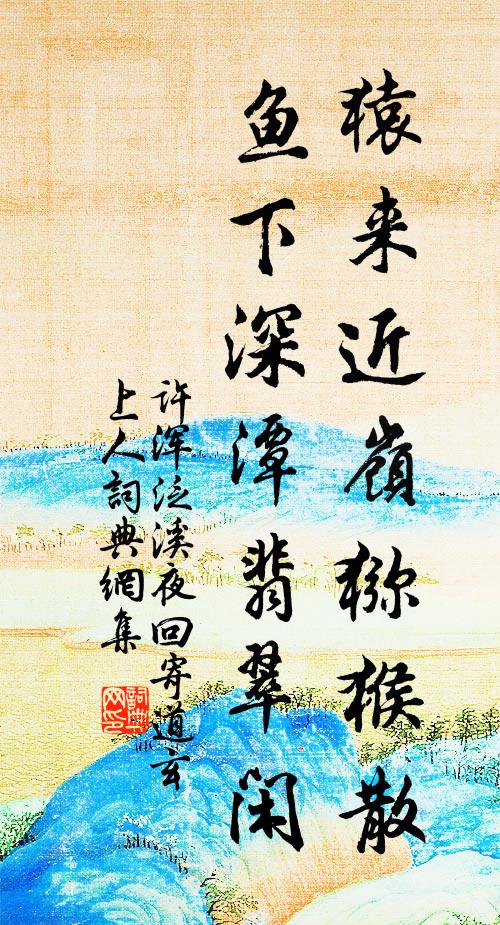 猿来近嶺猕猴散
鱼下深潭翡翠闲
许浑泛溪夜回寄道玄
上人詞典網集